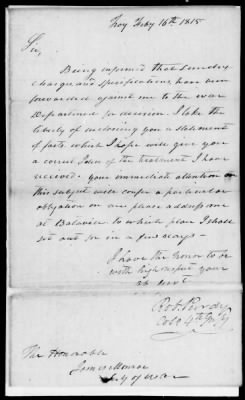 Troy Feby 16th 1815
Sir,
Being informed that sundry
charges and specifications have been
forwarded against me to the war
Department for decision. I take the
liberty of inclosing you a statement
of facts which I hope will give you
a correct Idea of the treatment I have
received. your immediate attention on
this subject will confer a particular
obligation on me please address me
at Batavia to which place I shall
set out for in a few days—
I have the honor to be
with high respect your
ob servt
Robt. Purdy
Colo 4th Infy
The Honorable
James Monroe
Secy of War